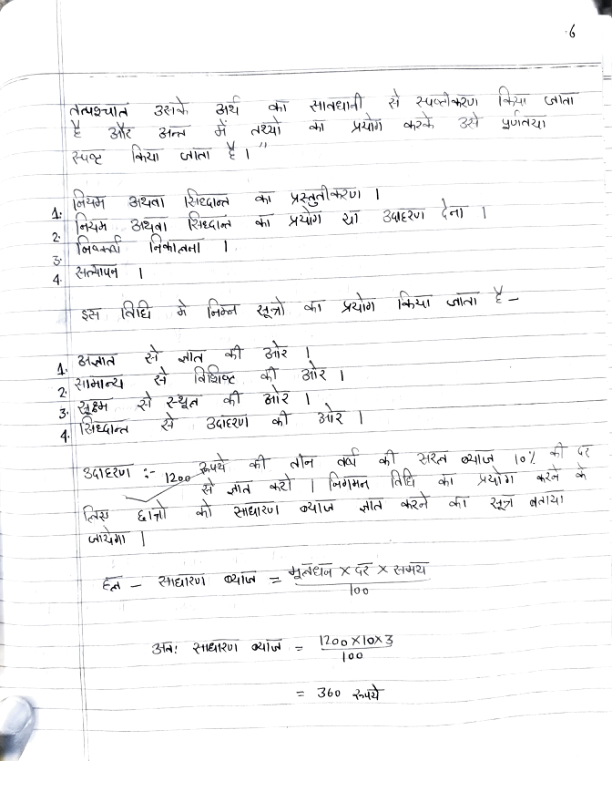 6
तत्पश्चात उसके अर्थ का सावधानी से स्पष्टीकरण किया जाता
है और अन्त में तथ्यो का प्रयोग करके उसे पूर्णतया
स्पष्ट किया जाता है । "
1. नियम अथवा सिद्धान्त का प्रस्तुतीकरण ।
2. नियम अथवा सिध्दान्त का प्रयोग या उदाहरण देना ।
3. निष्कर्ष निकालना ।
4. सत्यापन ।
इस विधि मे निम्न सूत्रो का प्रयोग किया जाता है –
1. अज्ञात से ज्ञात की ओर ।
2. सामान्य से विशिष्ट की ओर ।
3. सूक्ष्म से स्थूल की ओर ।
4. सिध्दान्त से उदाहरण की ओर ।
उदाहरण :- 1200 रूपये की तीन वर्ष की सरल ब्याज 10% की दर
से ज्ञात करो । निगमन विधि का प्रयोग करने के
लिए छात्रो को साधारण ब्याज ज्ञात करने का सूत्र बताया
जायेगा ।
हल – साधारण ब्याज = मूलधन × दर × समय
100
अतः साधारण ब्याज = 1200×10×3
100
= 360 रूपये